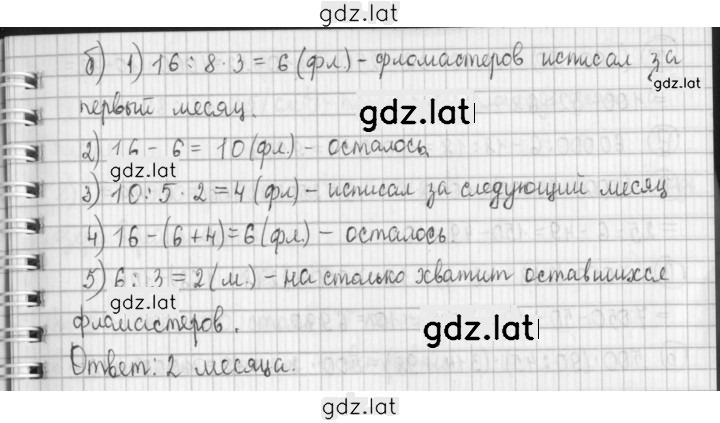 gdz.lat
б) 1) 16 : 8 · 3 = 6 (фл) - фломастеров исписал за
gdz.lat
первый месяц.
gdz.lat
2) 16 - 6 = 10 (фл) - осталось
gdz.lat
3) 10 : 5 · 2 = 4 (фл) - исписал за следующий месяц
4) 16 - (6 + 4) = 6 (фл.) - осталось
5) 6 : 3 = 2 (м.) - на столько хватит оставшихся
gdz.lat
фломастеров.
gdz.lat
Ответ: 2 месяца.
gdz.lat